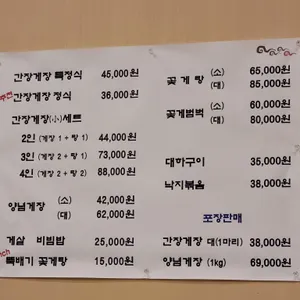 간장게장 특정식 45,000원
추천 간장게장 정식 36,000원
간장게장(小)세트
2인 (게장 1 + 탕 1) 44,000원
3인 (게장 2 + 탕 1) 73,000원
4인 (게장 2 + 탕 2) 88,000원
양념게장 (소) 42,000원
(대) 62,000원
게살 비빔밥 25,000원
뚝배기 꽃게탕 15,000원
꽃게탕 (소) 65,000원
(대) 85,000원
꽃게범벅 (소) 60,000원
(대) 80,000원
대하구이 35,000원
낙지볶음 38,000원
포장판매
간장게장 대(1마리) 38,000원
양념게장 (1kg) 69,000원